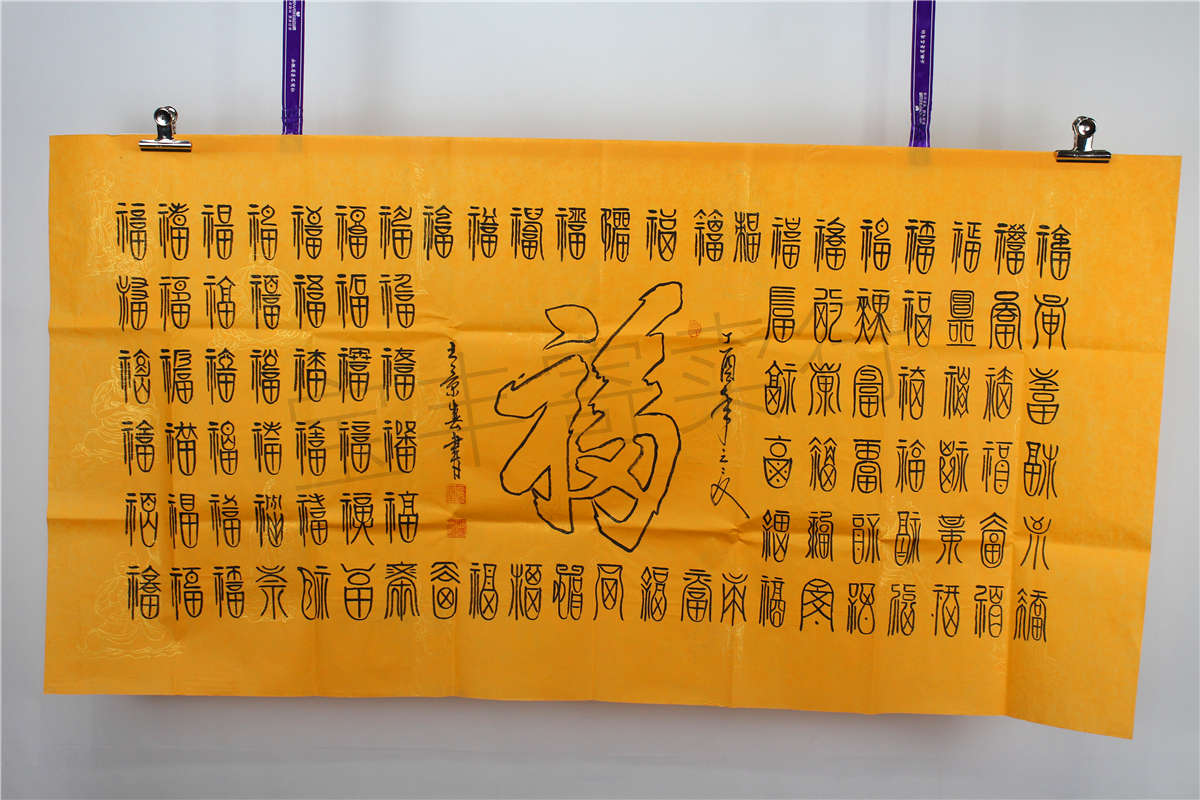 福福福福福福福福福福福福福福福福福福福福福福
福福福福福福福
福福福福福福福
福福福福福福福
福福福福福福福
福福福福福福福
福福福福福福福
福福福福福福福
福福福福福福福
丁酉年之
福
王景春書
福福福福福福福福福福福福福福福福福福福福福福